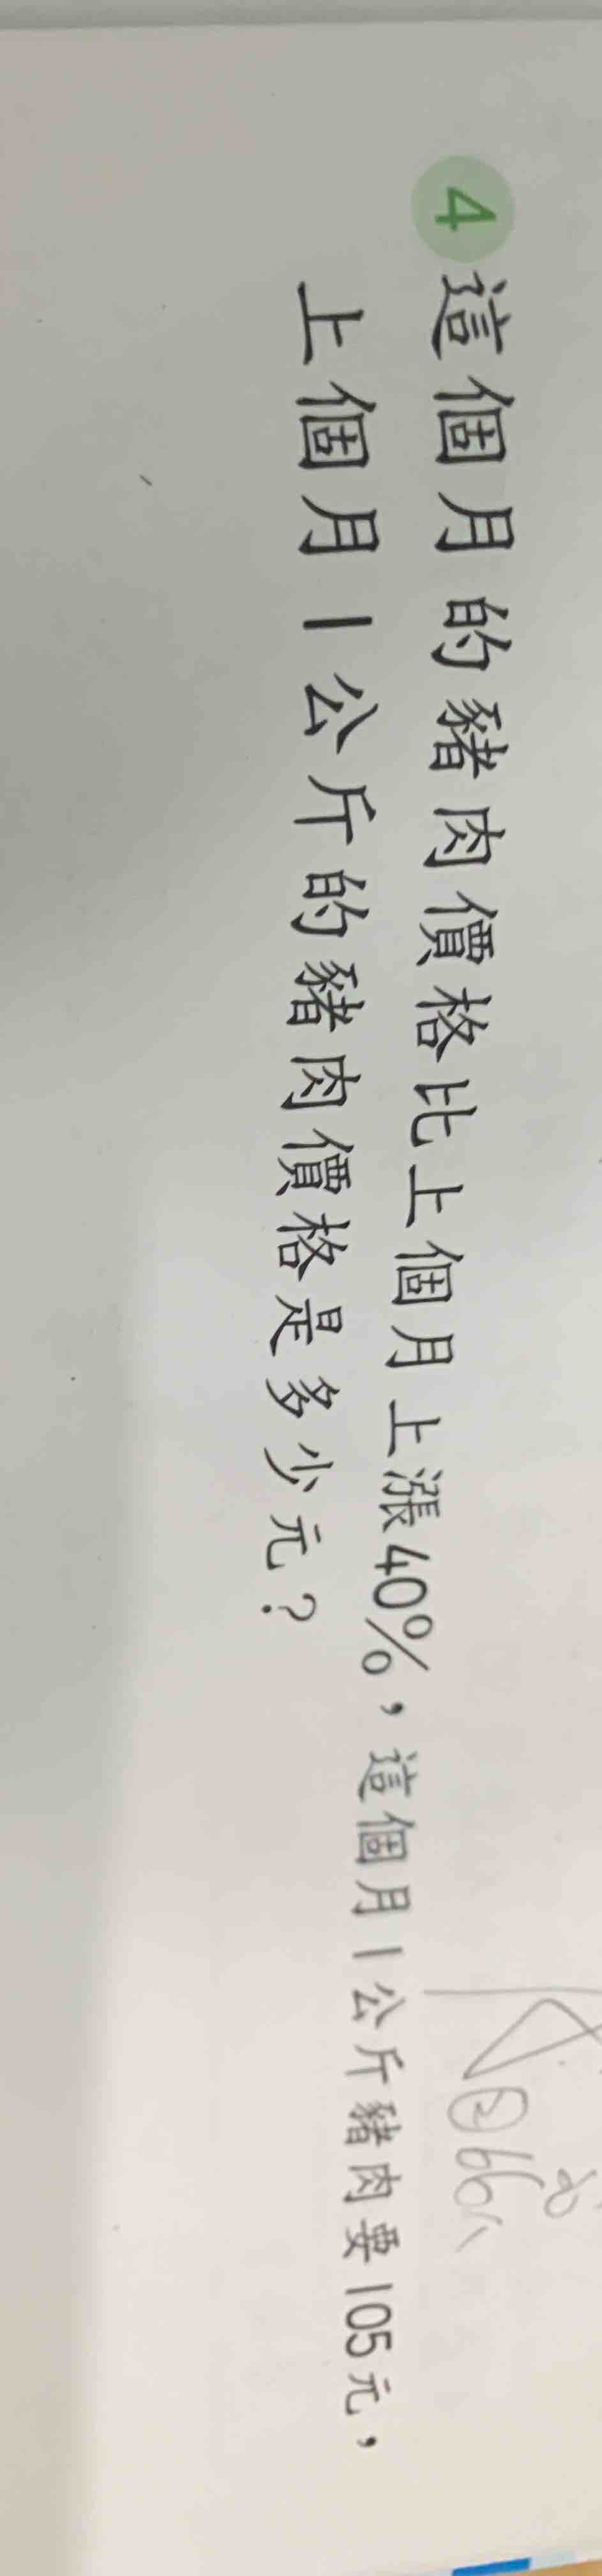 4 這個月的豬肉價格比上個月上漲40%，這個月1公斤豬肉要105元，
上個月1公斤的豬肉價格是多少元？